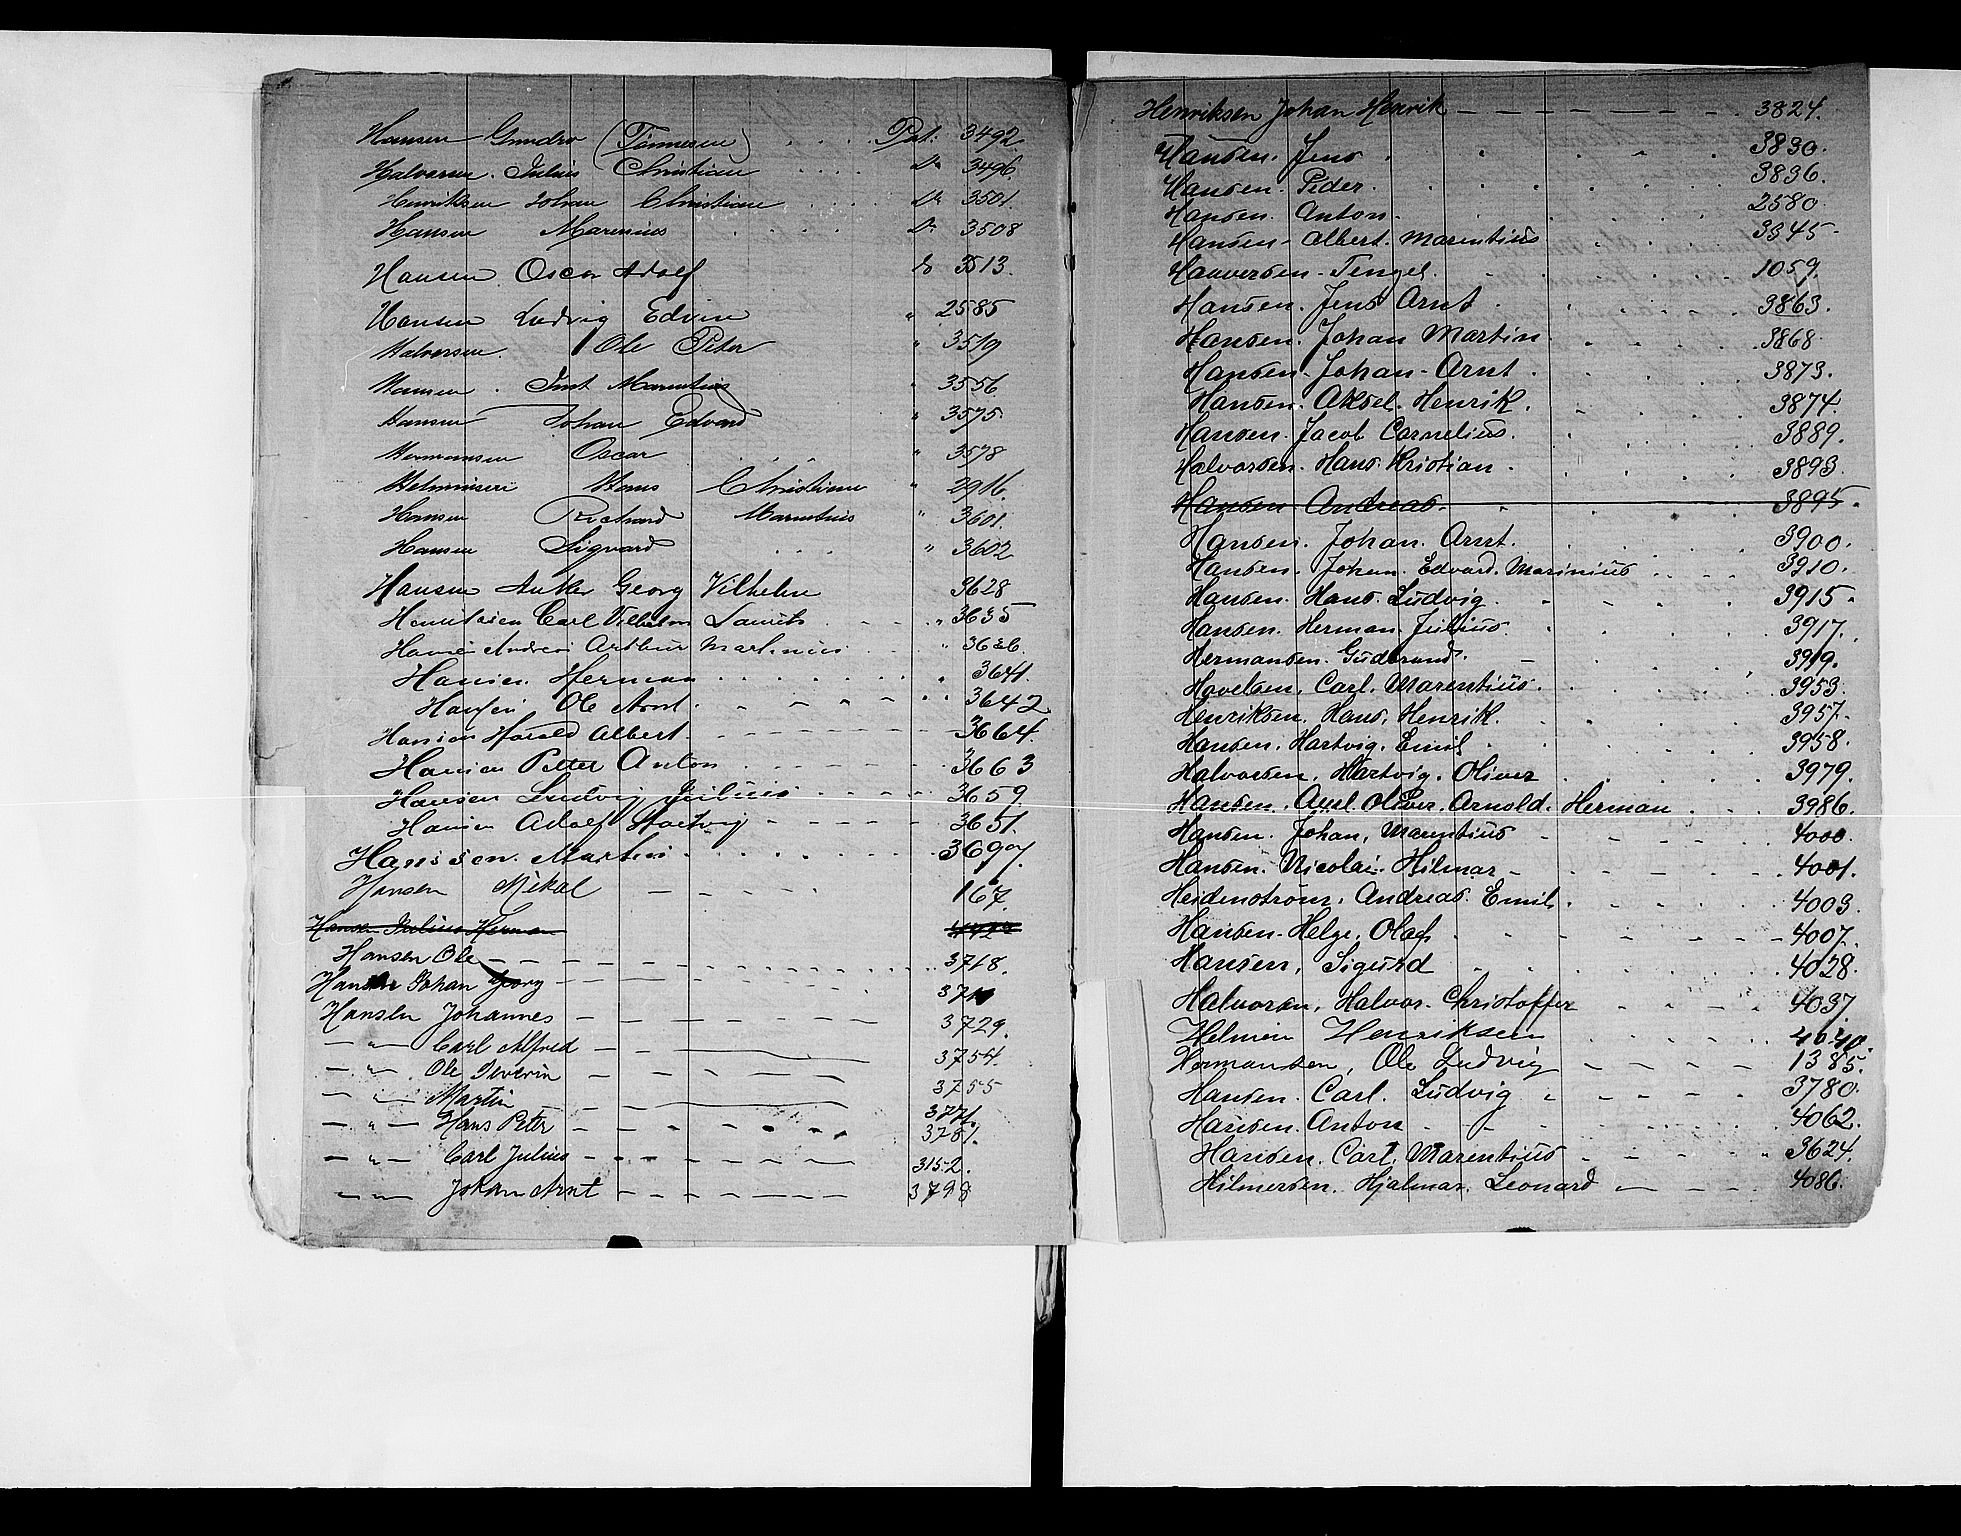 Hansen Gundro (Tønnesen) . . . . Pat. 3492
Halvorsen. Julius Christian . . . . Do 3496
Henriksen Johan Christian . . . . Do 3501.
Hansen Marenius . . . . Do 3508
Hansen Oscar Adolf Do 3513.
Hansen Ludvig Edvin " 2585
Halvorsen. Ole Peter " 3519
Hansen. Marentius " 3556
Hansen Johan Edvard " 3575
Hermansen Oscar . . . " 3578
Helminsen Hans Christian " 2916.
Hansen Richard Marentius " 3601.
Hansen Sigvard . . . " 3602
Hansen Anker Georg Vilhelm 3628
Henriksen Carl Vilhelm Laurits . . . . " 3635
Hansen Andreas Arthur Martinius . . . . " 3636.
Hansen. Herman . . . . . . . 3641.
Hansen Ole Arnt. - - - - - - 3642
Hansen Harald Albert. - - - - - - 3664.
Hansen Peter Anton - - - - - - 3663
Hansen Ludvig Julius - - - - - 3659
Hansen Adolf Hartvig - - - - - 3651.
Hanssen. Martin . . . . . . . 3697.
Hansen Mikal - - - - 167.
Hansen Julius Herman
Hansen Ole - - - - - - - - 3718.
Hansen Johan Georg - - - - -
Hansen Johannes - - - - - 3729.
— " — Carl Alfred - - - - 3754.
— " — Ole Severin - - - - - 3755
— " — Martin - - - - 3771.
— " — Hans Peter - - - - - - 3787.
— " — Carl Julius - - - - - - 3152.
— " — Johan Arnt - - - - - - 3798
Henriksen Johan Henrik - - - - - - - 3824.
Hansen. Jens . . . . 3830.
Hansen. Peder. . . . . . . . 3836.
Hansen. Anton. . . . . . 2580.
Hansen - Albert. Marentius . . . . 3845
Haaversen - Tengel. . . . . . 1059.
Hansen. Jens Arnt . . . . . . 3863.
Hansen. Johan Martin . . . . . 3868.
Hansen. Johan - Arnt . . . . . 3873.
Hansen. Aksel. Henrik. . . . . 3874.
Hansen. Jacob Cornelius. . . . . 3889.
Halvorsen. Hans. Kristian . . . . . 3893.
Hansen Andreas. . . . . 3895.
Hansen. Johan. Arnt. . . . . 3900.
Hansen. Johan. Edvard. Marinius . . . . 3910.
Hansen. Hans. Ludvig. . . . . 3915.
Hansen. Herman. Julius. . . . . 3917.
Hermansen. Gudbrand. - . . . . 3919.
Havelsen. Carl. Marentius. . . . . 3953.
Henriksen. Hans. Henrik. . . . . 3957.
Hansen. Hartvig. Emil . . . . 3958.
Halvorsen. Hartvig. Oliver . . . . 3979.
Hansen. Axel. Oliver. Arnold. Herman . . . 3986.
Hansen. Johan. Marentius - - - - 4000.
Hansen. Nicolai. Hilmar - - - - 4001.
Heidenstrøm. Andreas. Emil. . . . . 4003.
Hansen - Helge. Olaf . - - - - 4007.
Hansen. Sigurd . . . . . 4028.
Halvorsen. Halvor. Christoffer . . . . 4037.
Helmin Henriksen . . . . . 4040.
Hermansen, Ole Ludvig - - - - 1385.
Hansen. Carl. Ludvig - - - - 3780.
Hansen. Anton - - - - 4062.
Hansen. Carl. Marentius - - - - 3624.
Hilmersen. Hjalmar. Leonard - - - - 4086.